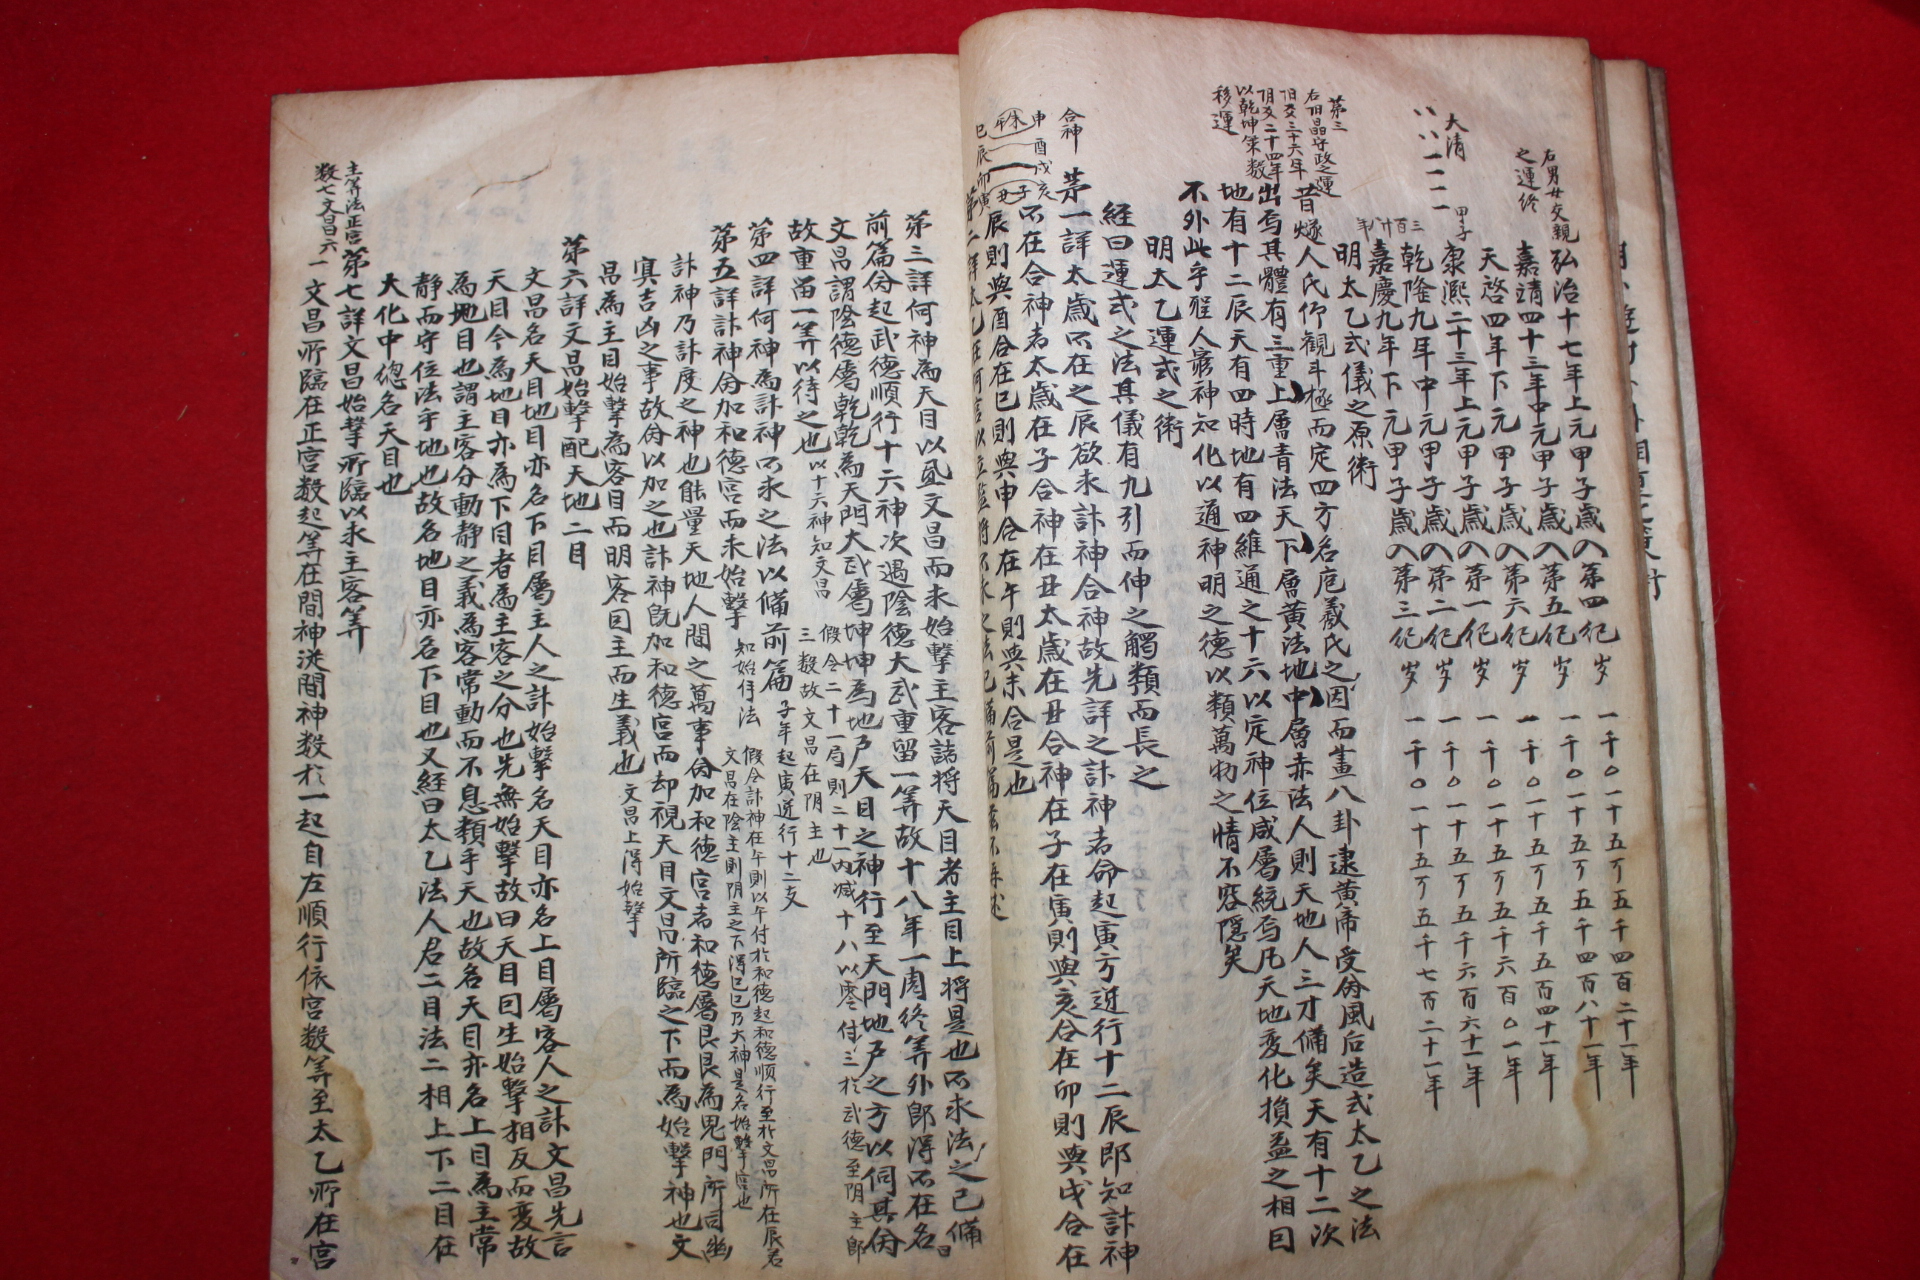 右男女交親
之運終
弘治十七年上元甲子歲入第四紀 岁 一千〇一十五万五千四百二十一年
嘉靖四十三年中元甲子歲入第五紀 岁 一千〇一十五万五千四百八十一年
天啓四年下元甲子歲入第六紀 岁 一千〇一十五万五千五百四十一年
大清
甲子
康熙二十三年上元甲子歲入第一紀 岁 一千〇一十五万五千六百〇一年
乾隆九年中元甲子歲入第二紀 岁 一千〇一十五万五千六百六十一年
三百卅年
嘉慶九年下元甲子歲入第三紀 岁 一千〇一十五万五千七百二十一年
明太乙式儀之原術
第三
以乾坤策数
移運
昔燧人氏仰觀斗極而定四方名庖羲氏之因而畫八卦逮黄帝受俻風后造式太乙之法
出焉其體有三重上層青法天下層黄法地中層赤法人則天地人三才俻矣天有十二次
地有十二辰天有四時地有四維通之十六以定神位咸屬統焉凡天地变化損益之相因
不外此乎聖人窮神知化以通神明之德以類萬物之情不容隱矣
明太乙運式之術
經曰運式之法其儀有九引而伸之觸類而長之
合神
第一詳太歲所在之辰欲求計神合神故先詳之計神者命起寅方逆行十二辰即知計神
申酉戌亥
未 午
子 丑
巳辰卯寅
所在合神者太歲在子合神在丑太歲在丑合神在子在寅則與亥合在卯則與戌合在
辰則與酉合在巳則與申合在午則與未合是也
第三詳何神為天目以㒷文昌而求始擊主客諸将天目者主目上将是也所求法之已備
前篇俻起武德順行十六神次遇陰德大武重留一筭故十八年一周終筭外郎得所在名曰
文昌謂陰德屬乾乾為天門大武屬坤坤為地户天目之神行至天門地户之方以伺其俻
故重畄一筭以待之也 以十六神知文昌 假令二十一局則二十一内减十八以零付三於武德至阴主郎
三数故文昌在阴主也
第四詳何神為計神所求之法以俻前篇 子年起寅逆行十二支
第五詳計神俻加和德宫而求始擊 知始侍法 假令計神在午則以午付於和德起和德順行至於文昌所在辰名
文昌在陰主則阴主之下得巳巳乃大神是名始擊宫也
計神乃計度之神也能量天地人間之萬事俻加和德宫者和德屬艮艮為鬼門所司幽
冥吉凶之事故俻以加之也計神既加和德宫而却視天目文昌所臨之下而為始擊神也文
昌為主目始擊為客目而明客因主而生義也 文昌上得始擊
第六詳文昌始擊配天地二目
文昌名天目地目亦名下目屬主人之計始擊名天目亦名上目屬客人之計文昌先言
天目今為地目亦為下目者為主客之分也先無始擊故曰天目因生始擊相反而变故
為地目也謂主客分動静之義為客常動而不息類乎天也故名天目亦名上目為主常
静而守位法乎地也故名地目亦名下目也又經曰太乙法人君二目法二相上下二目在
大化中總名天目也
主筭法正宫
数七文昌六
第七詳文昌始擊所臨以求主客筭
一文昌所臨在正宫数起筭在間神従間神数於一起自左順行依宫数筭至太乙所在宫